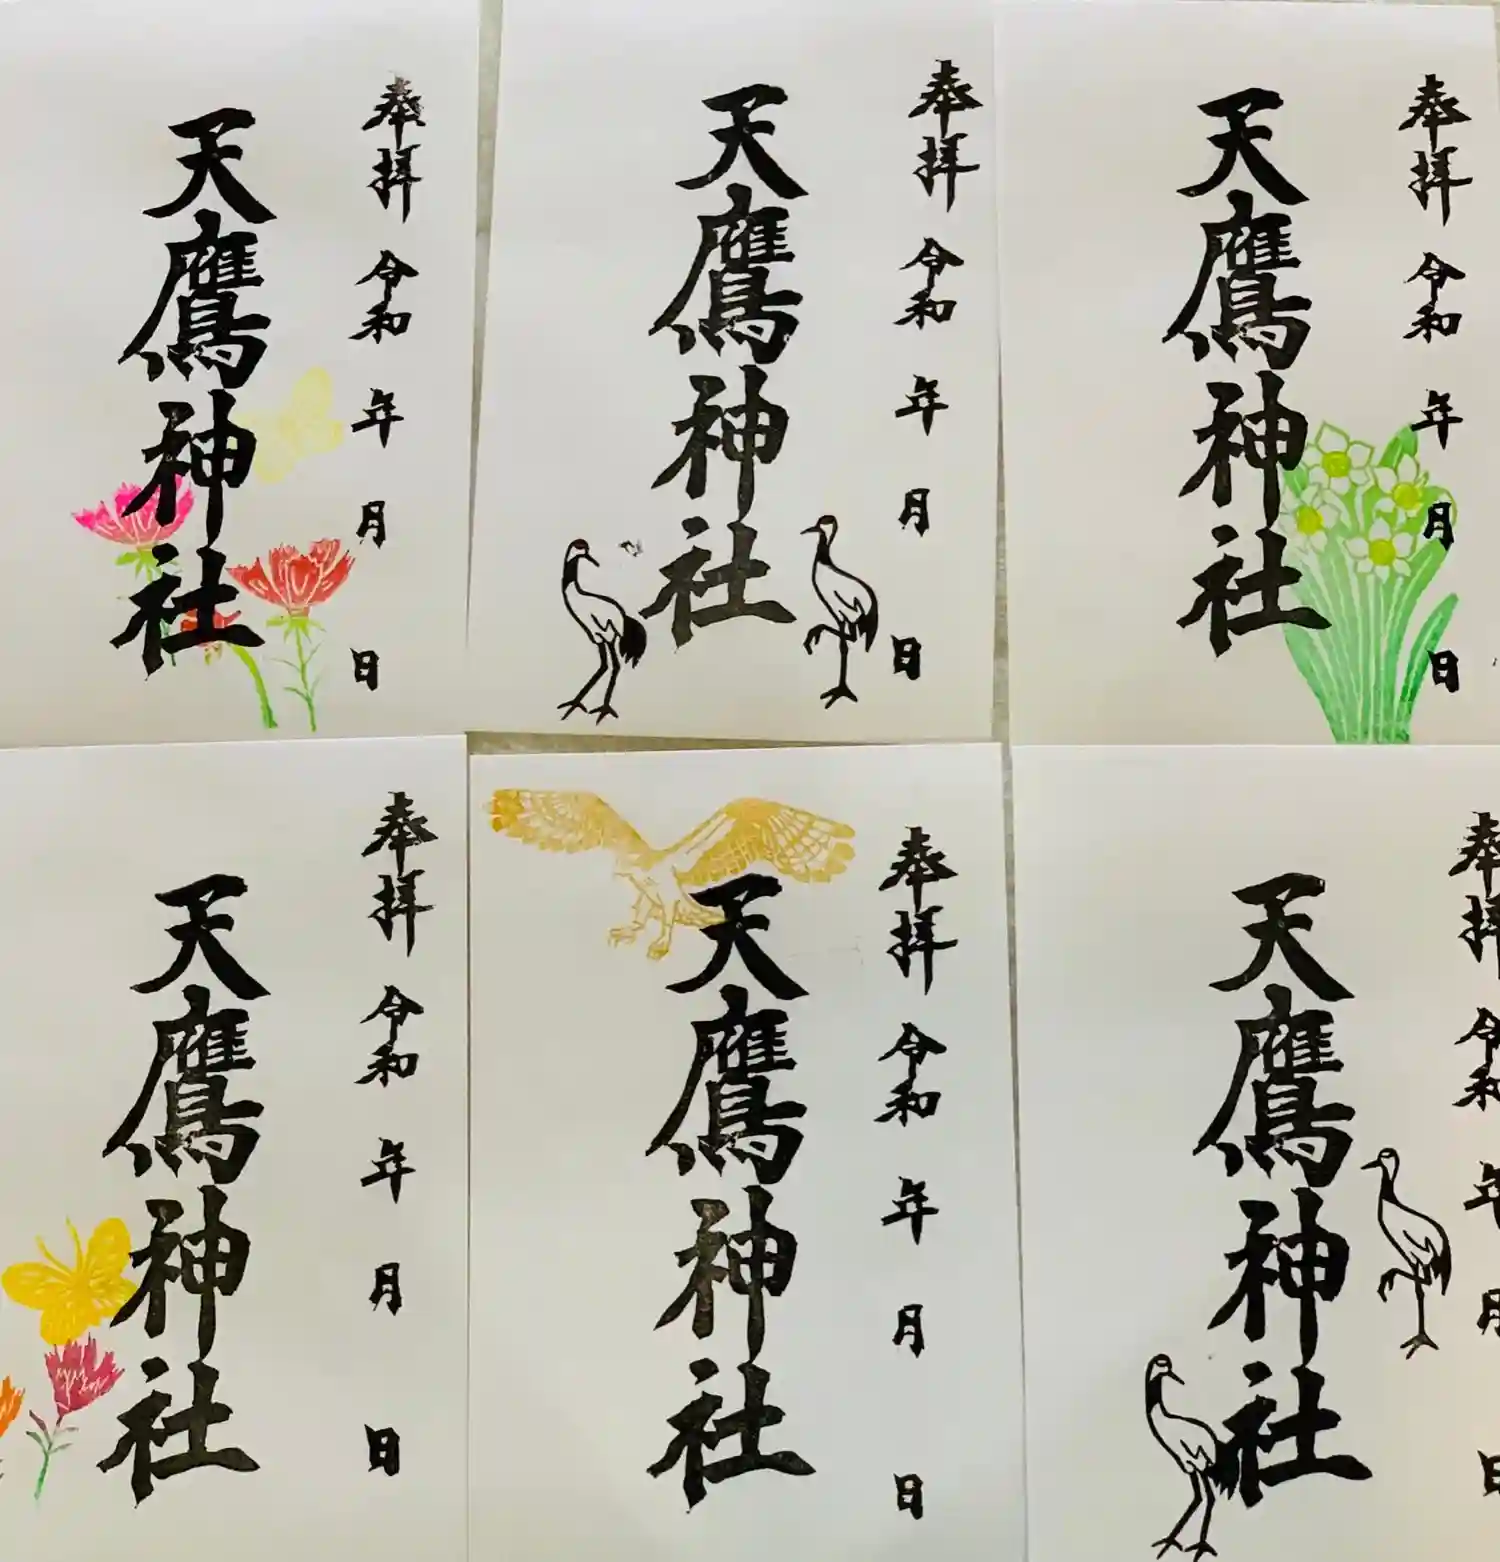 奉拝 令和 年 月 日
天鷹神社
奉拝 令和 年 月 日
天鷹神社
奉拝 令和 年 月 日
天鷹神社
奉拝 令和 年 月 日
天鷹神社
奉拝 令和 年 月 日
天鷹神社
奉拝 令和 年 月 日
天鷹神社